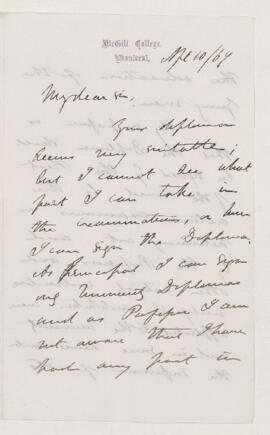 McGill College,
Montreal.
Apl 10/69
My dear sir,
Your diploma
seems very suitable;
but I cannot see what
part I can take in
the examinations, or how
I can sign the Diploma.
As Principal I can sign
only University Diplomas
and as Professor I am
not aware that I have
had any part in